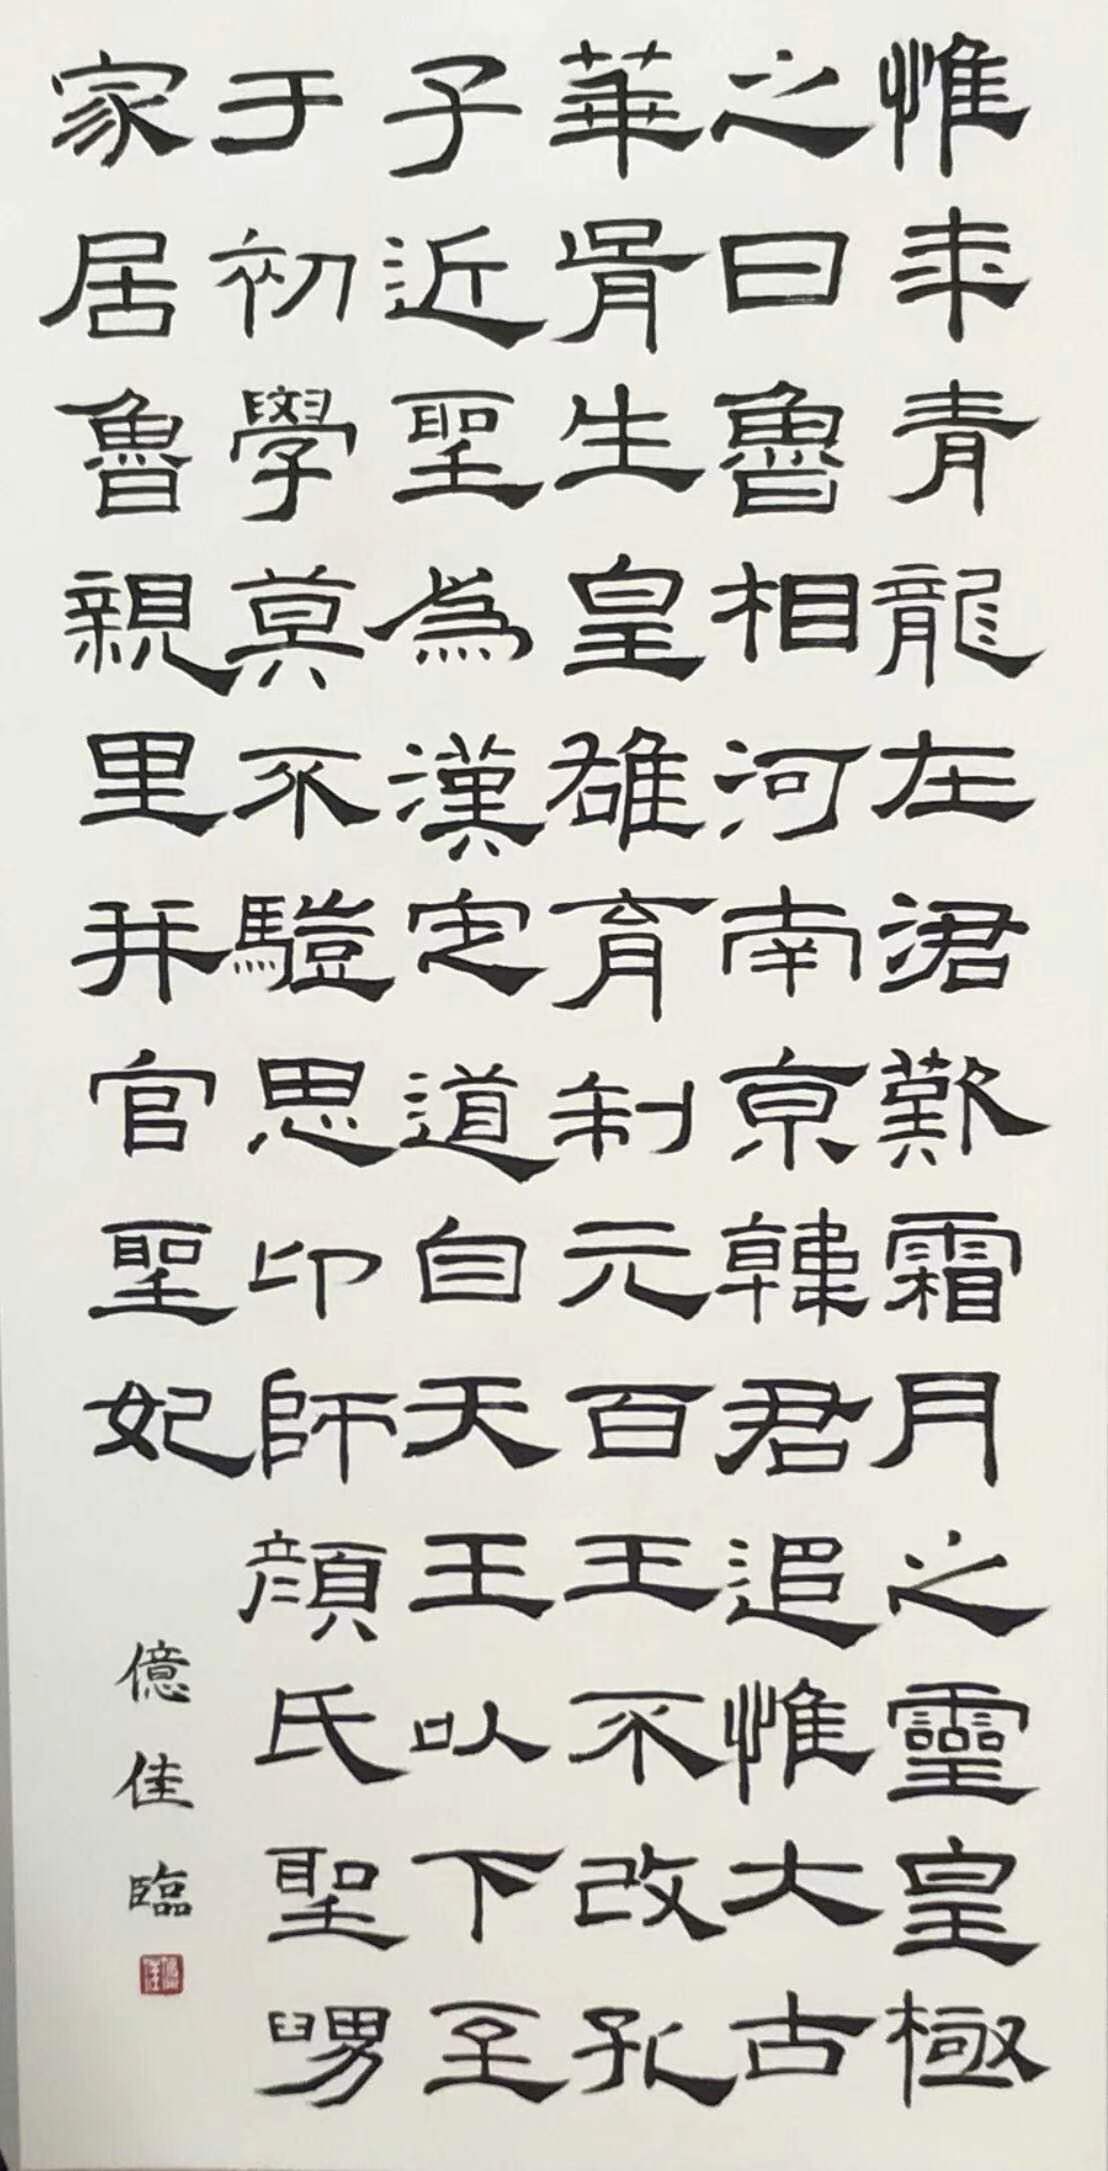 惟年青龍在涒歎霜月之靈皇極
之日魯相河南京韓君追惟大古
華胥生皇雄育制元百王不改孔
子近聖為漢定道自天王以下至
于初學莫不驥思卬師顏氏聖舅
家居魯親里并官聖妃
億佳臨